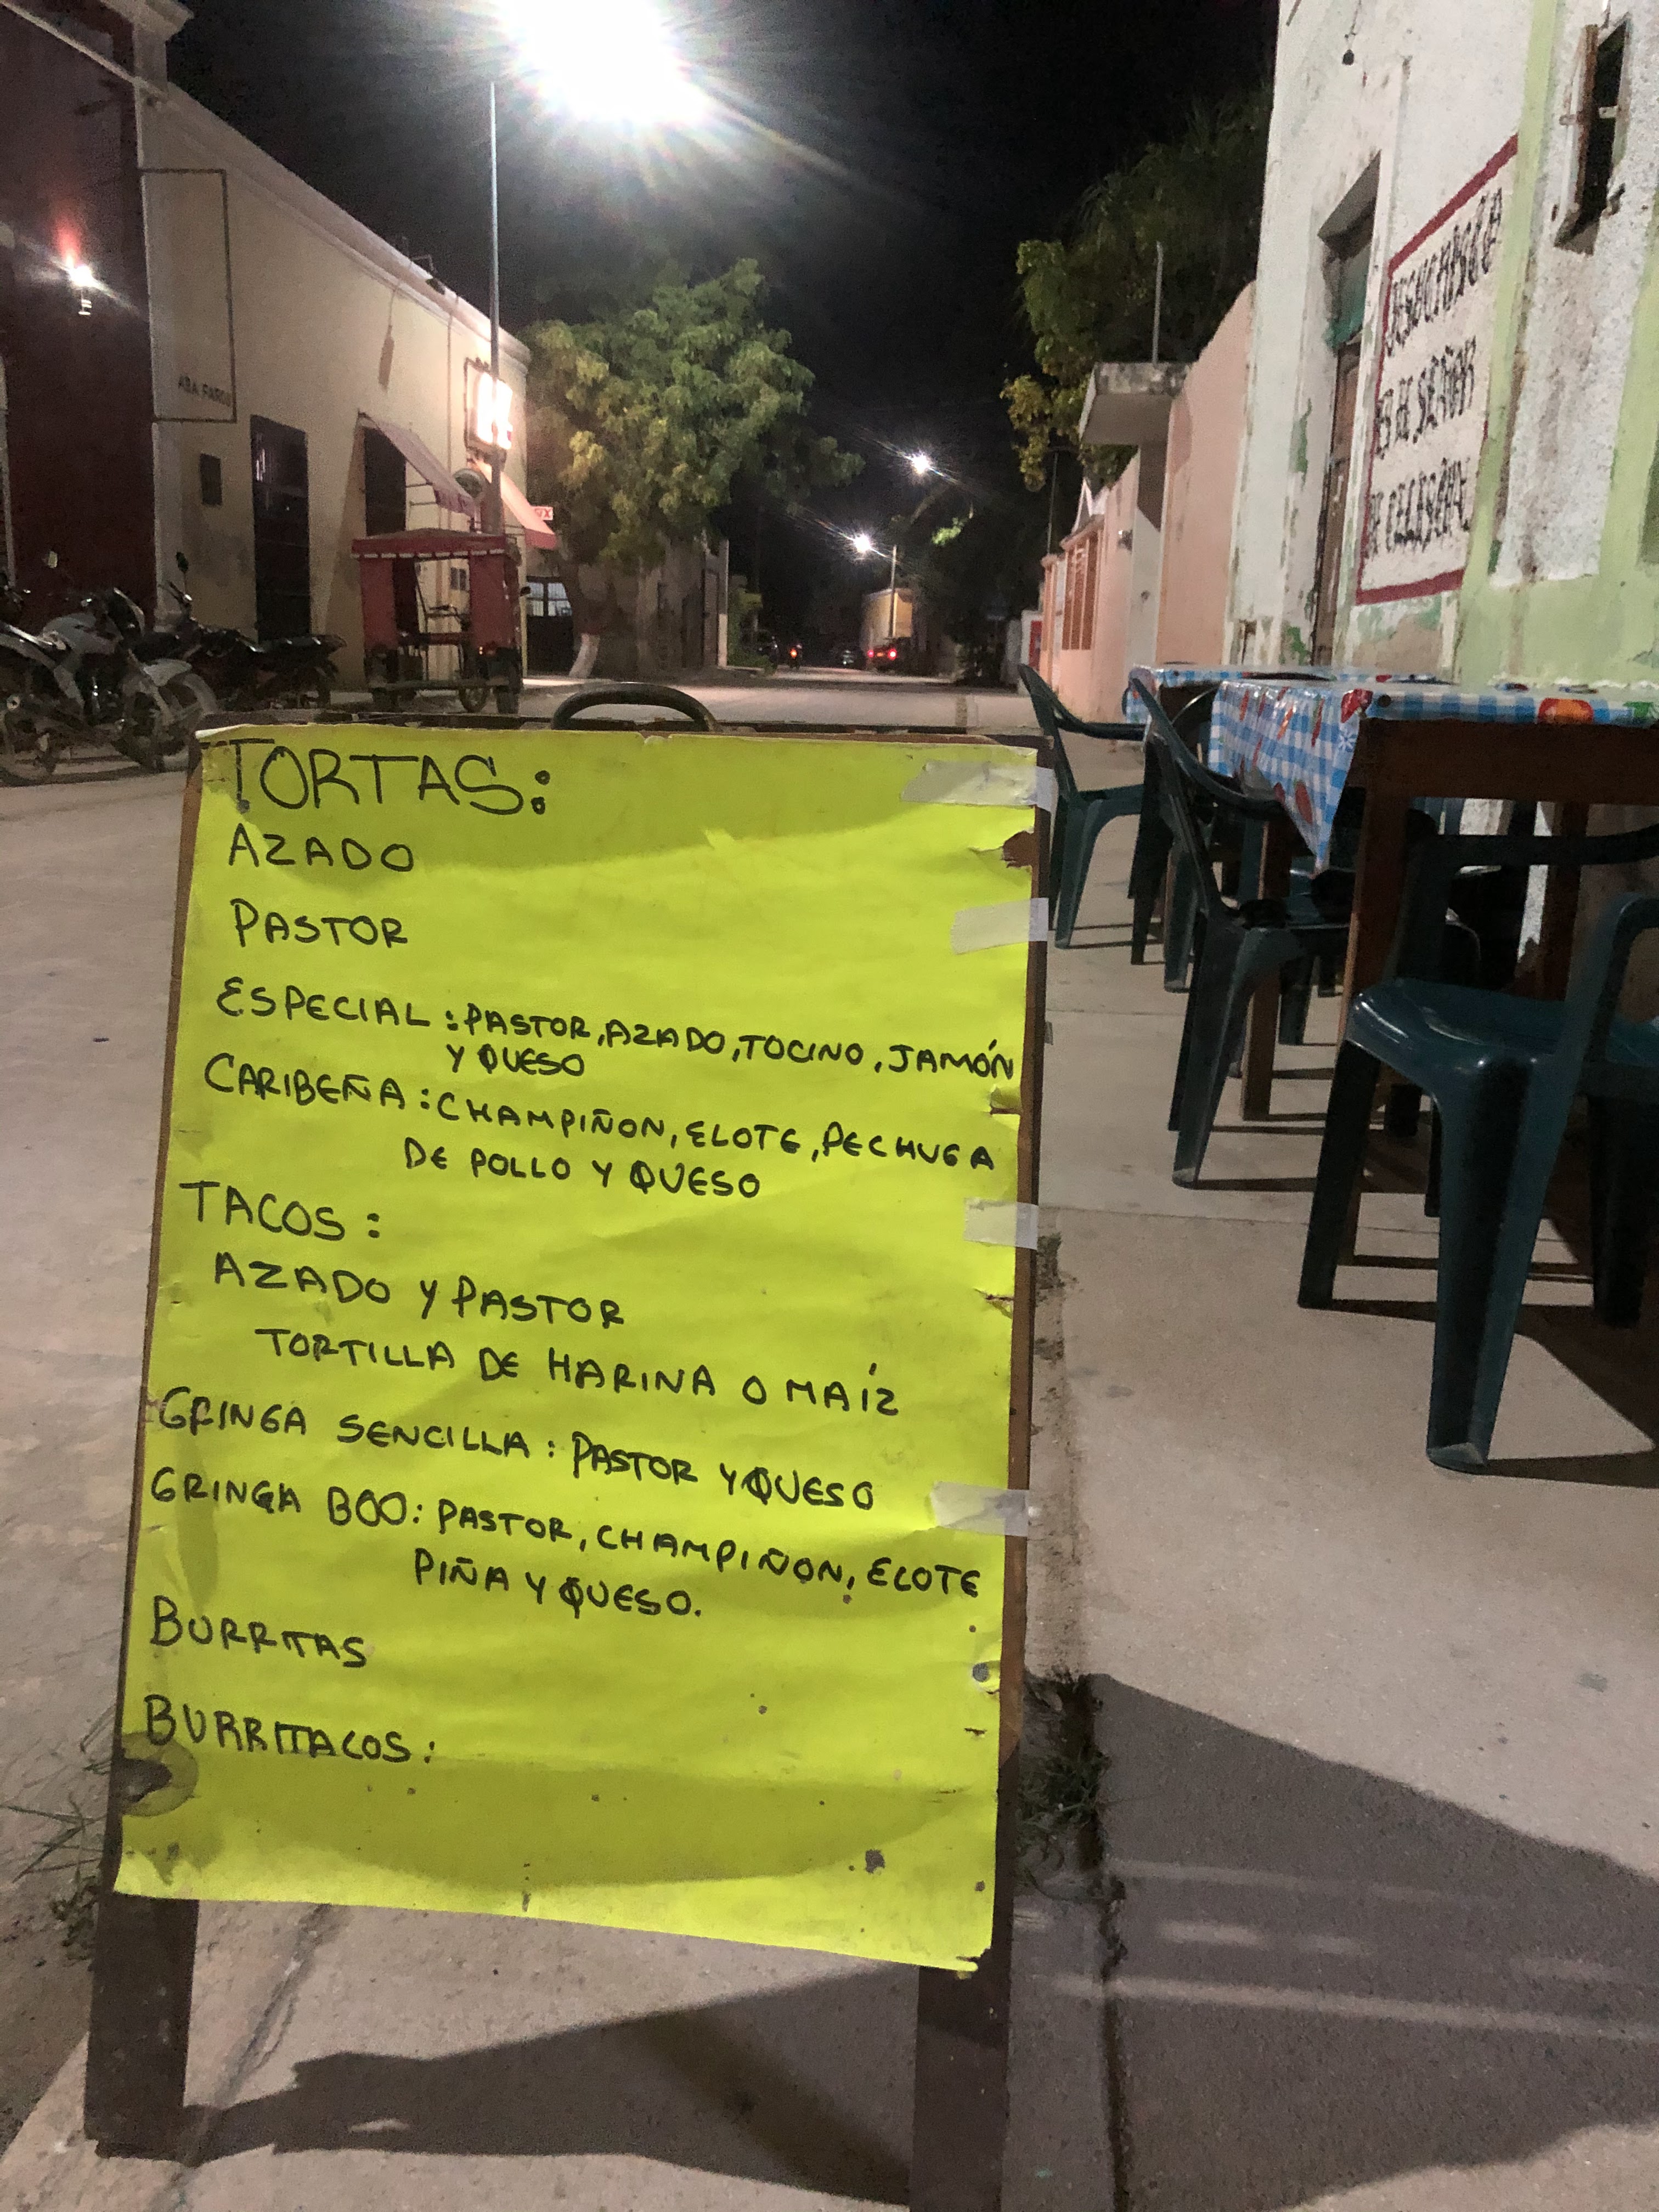 TORTAS:
AZADO
PASTOR
ESPECIAL: PASTOR, AZADO, TOCINO, JAMÓN
Y QUESO
CARIBEÑA: CHAMPIÑON, ELOTE, PECHUGA
DE POLLO Y QUESO
TACOS:
AZADO Y PASTOR
TORTILLA DE HARINA O MAÍZ
GRINGA SENCILLA: PASTOR Y QUESO
GRINGA BOO: PASTOR, CHAMPIÑON, ELOTE
PIÑA Y QUESO.
BURRITAS
BURRITACOS: